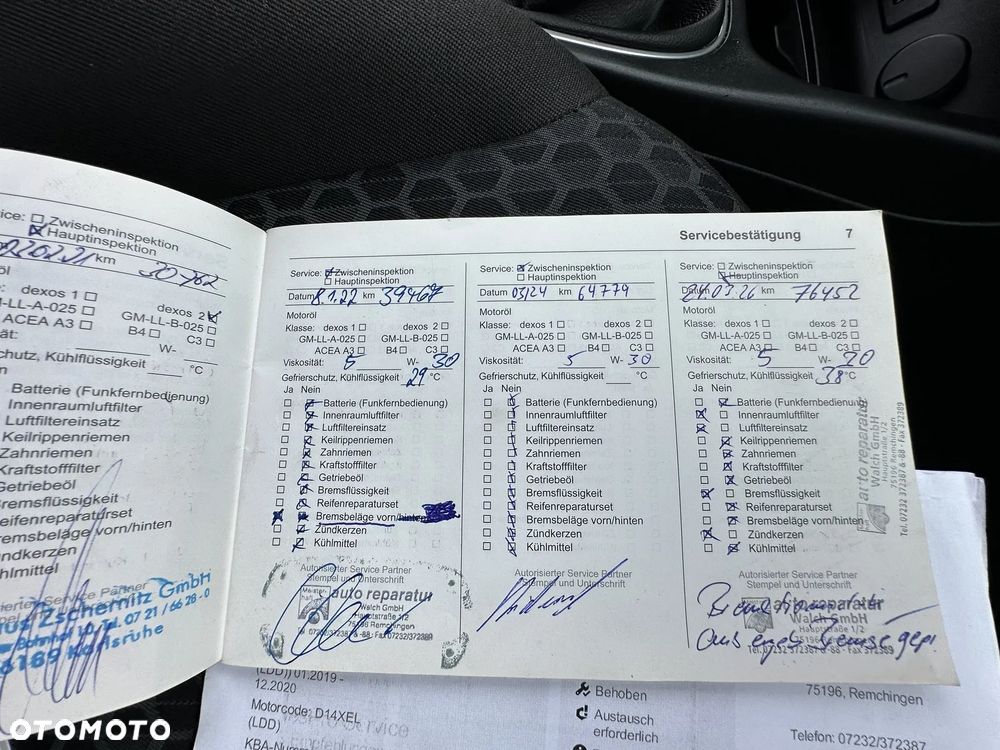 Servicebestätigung 7
vice: Zwischeninspektion
Hauptinspektion
km 30-762
dexos 1
dexos 2
-LL-A-025
GM-LL-B-025
ACEA A3 B4 C3
W-
schutz, Kühlflüssigkeit °C
Batterie (Funkfernbedienung)
Innenraumluftfilter
Luftfiltereinsatz
Keilrippenriemen
Zahnriemen
Kraftstofffilter
Getriebeöl
Bremsflüssigkeit
Reifenreparaturset
Bremsbeläge vorn/hinten
ündkerzen
ühlmittel
Zschernitz GmbH
Bahnhof Tel. 07 21 / 66 28-0
Karlsruhe
Service: Zwischeninspektion
Hauptinspektion
Datum 8.1.22 km 39467
Motoröl
Klasse: dexos 1 dexos 2
GM-LL-A-025 GM-LL-B-025
ACEA A3 B4 C3
Viskosität: 5 W- 30
Gefrierschutz, Kühlflüssigkeit 29 °C
Ja Nein
Batterie (Funkfernbedienung)
Innenraumluftfilter
Luftfiltereinsatz
Keilrippenriemen
Zahnriemen
Kraftstofffilter
Getriebeöl
Bremsflüssigkeit
Reifenreparaturset
Bremsbeläge vorn/hinten
Zündkerzen
Kühlmittel
Autorisierter Service Partner
Stempel und Unterschrift
auto reparatur
Walch GmbH
Hauptstraße 1/2
75196 Remchingen
Tel. 07232/372387 Fax 07232/372389
Service: Zwischeninspektion
Hauptinspektion
Datum 03/24 km 64779
Motoröl
Klasse: dexos 1 dexos 2
GM-LL-A-025 GM-LL-B-025
ACEA A3 B4 C3
Viskosität: 5 W- 30
Gefrierschutz, Kühlflüssigkeit °C
Ja Nein
Batterie (Funkfernbedienung)
Innenraumluftfilter
Luftfiltereinsatz
Keilrippenriemen
Zahnriemen
Kraftstofffilter
Getriebeöl
Bremsflüssigkeit
Reifenreparaturset
Bremsbeläge vorn/hinten
Zündkerzen
Kühlmittel
Autorisierter Service Partner
Stempel und Unterschrift
Service: Zwischeninspektion
Hauptinspektion
Datum 03.26 km 76452
Motoröl
Klasse: dexos 1 dexos 2
GM-LL-A-025 GM-LL-B-025
ACEA A3 B4 C3
Viskosität: 5 W-
Gefrierschutz, Kühlflüssigkeit 38 °C
Ja Nein
Batterie (Funkfernbedienung)
Innenraumluftfilter
Luftfiltereinsatz
Keilrippenriemen
Zahnriemen
Kraftstofffilter
Getriebeöl
Bremsflüssigkeit
Reifenreparaturset
Bremsbeläge vorn/hinten
Zündkerzen
Kühlmittel
Autorisierter Service Partner
Stempel und Unterschrift
auto reparatur
Walch GmbH
Hauptstraße 1/2
75196 Remchingen
Tel. 07232 372387 & -88 - Fax 372389
(LDD)) 01.2019 -
12.2020
Motorcode: D14XEL
(LDD)
KBA-Numm
Beheben
Austausch
erforderlich
75196, Remchingen
Telefon: 07232/372387
OTOMOTO